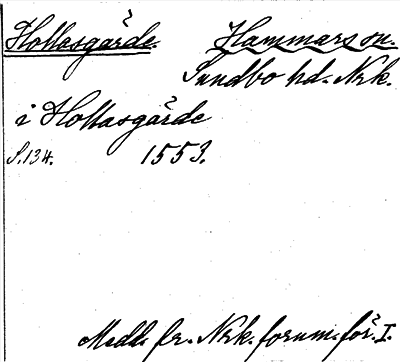 Hollasgärde. Hammars sn.
Sundbo hd. Nrk.
i Hollasgärde
S. 134. 1553.
Medd. fr. Nrk. fornm. för. I.